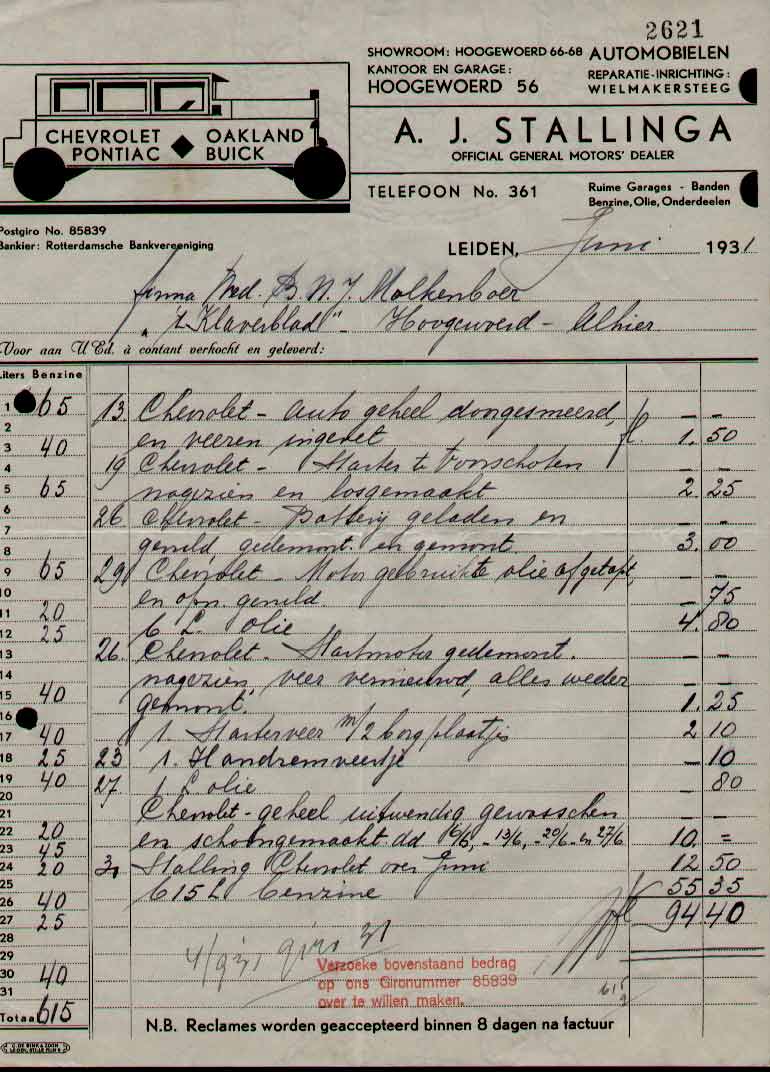 2621
SHOWROOM: HOOGEWOERD 66-68 AUTOMOBIELEN
KANTOOR EN GARAGE: REPARATIE-INRICHTING:
HOOGEWOERD 56 WIELMAKERSTEEG
CHEVROLET OAKLAND
PONTIAC BUICK
A. J. STALLINGA
OFFICIAL GENERAL MOTORS' DEALER
TELEFOON No. 361 Ruime Garages - Banden
Benzine, Olie, Onderdeelen
Postgiro No. 85839
Bankier: Rotterdamsche Bankvereeniging
LEIDEN, Juni 1931
Firma Wed. B. N. J. Molkenboer
"'t Klaverblad" - Hoogewoerd - Alhier
Voor aan U Ed. à contant verkocht en geleverd:
Liters Benzine
1 65 13 Chevrolet - auto geheel doorgesmeerd,
2 en veeren ingevet fl. 1.50
3 40
4 19 Chevrolet - Starter te Voorschoten
5 65 nagezien en losgemaakt 2 25
6 26 Chevrolet - Batterij geladen en
7
8 gevuld, gedemont. en gemont. 3.00
9 65 29 Chevrolet - Motor gebruikte olie afgetapt,
10 en opn. gevuld. - 75
11 20 6 L. olie 4.80
12 25
13 26. Chevrolet - Startmotor gedemont.
14 nagezien, veer vernieuwd, alles weder
15 40 gemont. 1.25
16
17 40 1. Starterveer m/2 borgplaatjes 2 10
18 25 23 1. Handremveertje - 10
19 40 27 1 L. olie 80
20
21 Chevrolet - geheel uitwendig gewasschen
22 20 en schoongemaakt dd 6/6, - 13/6, - 20/6 - en 27/6 10. =
23 45
24 20 30 Stalling Chevrolet over Juni 12 50
25 615 L benzine 55 35
26 40 fl 94.40
27 25
28
29
30 40
31
Totaal 615
4/9 31 giro 31
Verzoeke bovenstaand bedrag
op ons Gironummer 85839
over te willen maken.
615
9
N.B. Reclames worden geaccepteerd binnen 8 dagen na factuur